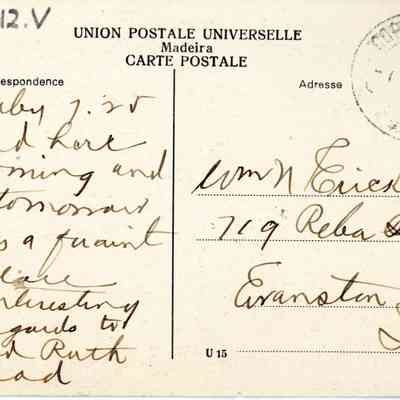 12.V
UNION POSTALE UNIVERSELLE
Madeira
CARTE POSTALE
respondence
Adresse
uly 7.25
d here
rning and
tomorrow
s a quaint
lace
nteresting
gards to
d Ruth
ad
Wm N Erick
719 Reba
Evanston
U 15